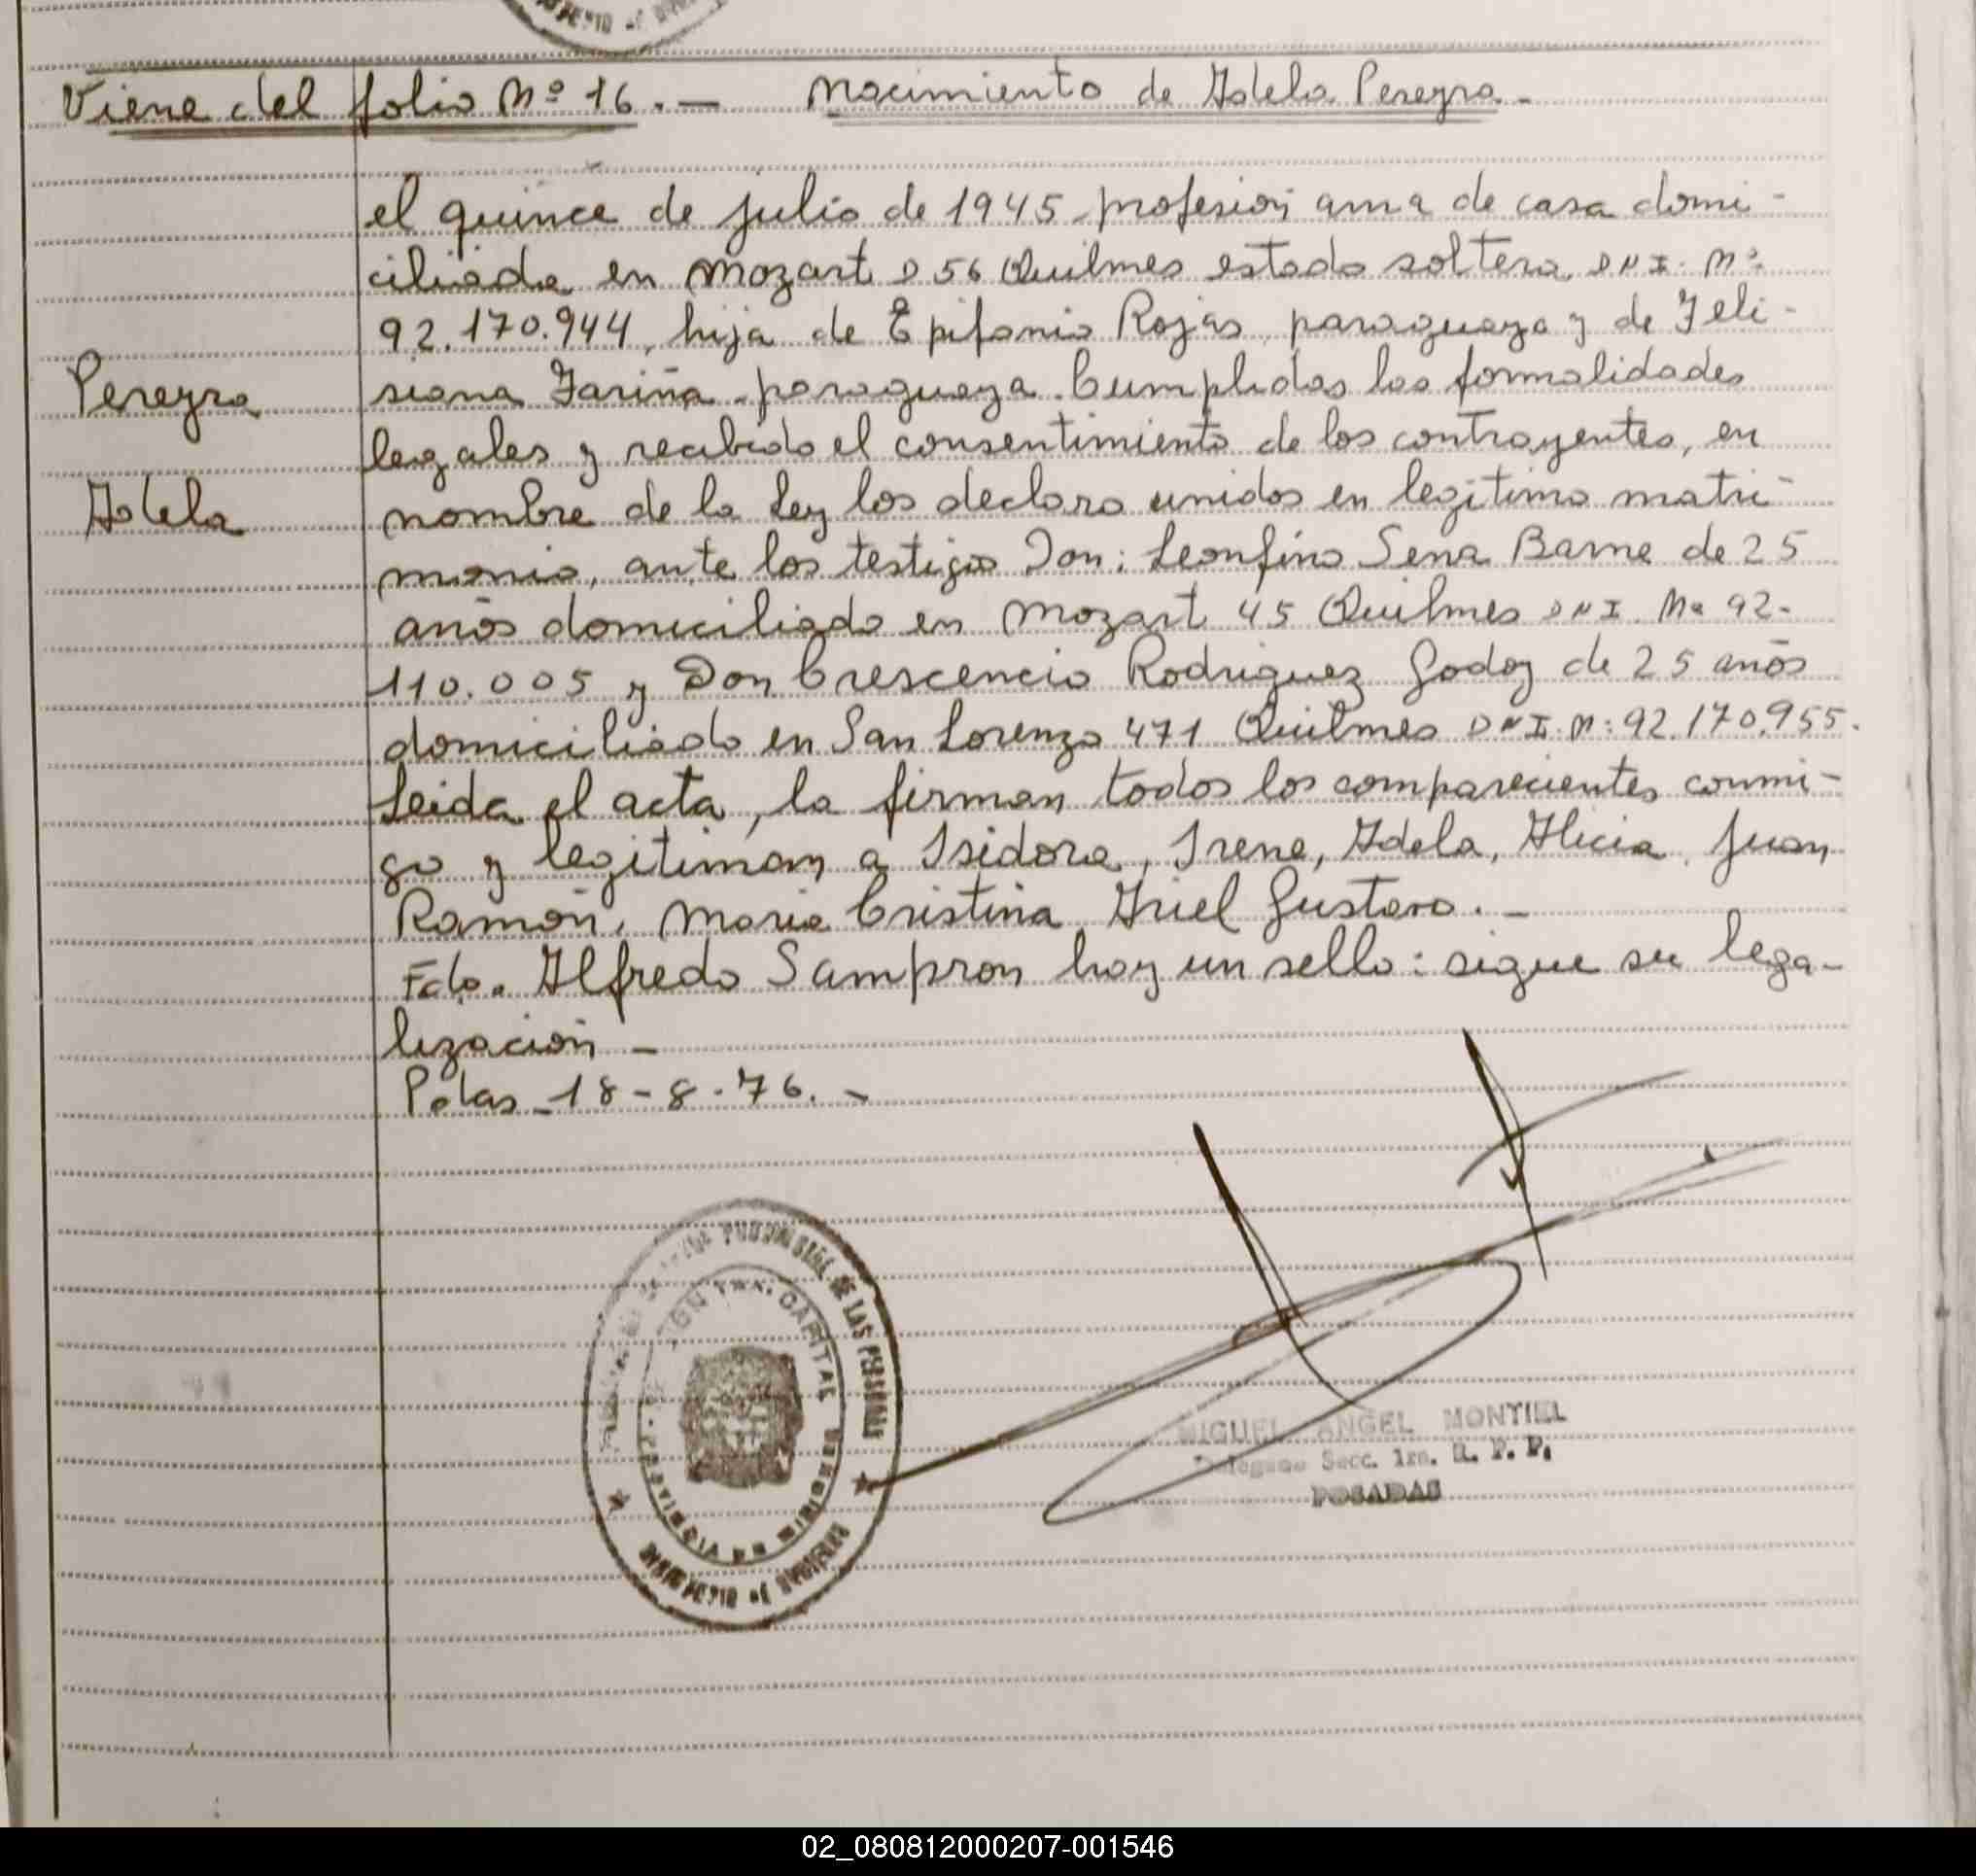 Viene del folio Nº 16. — Nacimiento de Adela Pereyra -
el quince de julio de 1945 - profesión ama de casa domi-
ciliada en Mozart 056 Quilmes estado soltera DNI. Nº
92.170.944, hija de Epifanio Rojas, paraguayo y de Feli-
Pereyra
siana Fariña - paraguaya. Cumplidas las formalidades
legales y recibido el consentimiento de los contrayentes, en
Adela
nombre de la Ley los declaro unidos en legitimo matri-
monio, ante los testigos Don: Leonfino Sena Barne de 25
años domiciliado en Mozart 45 Quilmes DNI. Nº 92-
110.005 y Don Crescencio Rodriguez Godoy de 25 años
domiciliado en San Lorenzo 471 Quilmes DNI. N: 92.170.955.
Leida el acta, la firman todos los comparecientes conmi-
go y legitiman a Isidora, Irene, Adela, Alicia, Juan
Ramón, Maria Cristina Ariel Gustavo. —
Fdo. Alfredo Sampron hay un sello: sigue su lega-
lización —
Pdas - 18-8-76. -
PROVINCIAL DE LAS PERSONAS
CAPITAL
PROVINCIA DE MISIONES
MINISTERIO DE GOBIERNO
MIGUEL ANGEL MONTIEL
Delegado Secc. 1ra. R. P. P.
POSADAS
02_080812000207-001546